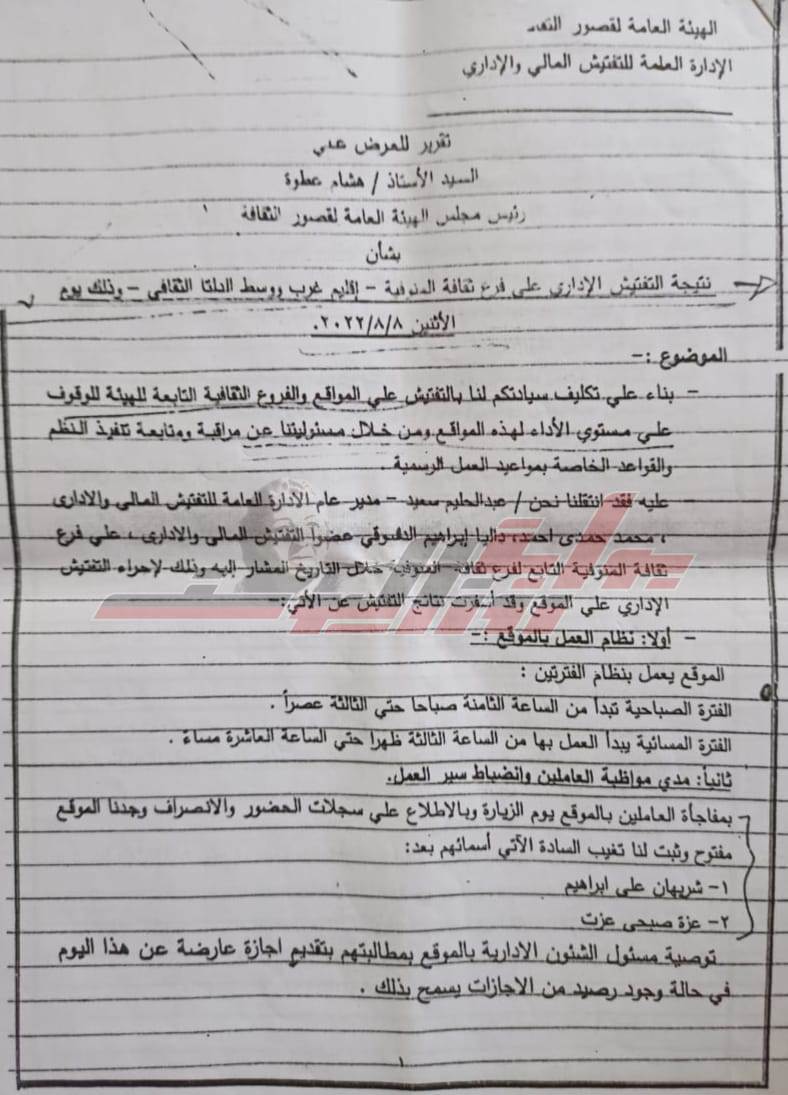 الهيئة العامة لقصور الثقا
الإدارة العامة للتفتيش المالي والإداري
تقرير للعرض علي
السيد الأستاذ / هشام عطوة
رئيس مجلس الهيئة العامة لقصور الثقافة
بشأن
نتيجة التفتيش الإداري علي فرع ثقافة المنوفية - إقليم غرب ووسط الدلتا الثقافي - وذلك يوم
الأثنين ٢٠٢٢/٨/٨.
الموضوع :-
- بناء علي تكليف سيادتكم لنا بالتفتيش علي المواقع والفروع الثقافية التابعة للهيئة للوقوف
علي مستوي الأداء لهذه المواقع ومن خلال مسئوليتنا عن مراقبة ومتابعة تنفيذ النظم
والقواعد الخاصة بمواعيد العمل الرسمية .
- عليه فقد انتقلنا نحن / عبدالحليم سعيد - مدير عام الأدارة العامة للتفتيش المالى والادارى
، محمد حمدى احمد، داليا إبراهيم الدسوقي عضوا التفتيش المالى والادارى ، علي فرع
ثقافة المنوفية التابع لفرع ثقافة المنوفية خلال التاريخ المشار إليه وذلك لإجراء التفتيش
الإداري علي الموقع وقد أسفرت نتائج التفتيش عن الأتي:-
- أولا: نظام العمل بالموقع :-
الموقع يعمل بنظام الفترتين :
الفترة الصباحية تبدأ من الساعة الثامنة صباحا حتي الثالثة عصراً .
الفترة المسائية يبدأ العمل بها من الساعة الثالثة ظهرا حتي الساعة العاشرة مساءً .
ثانياً: مدي مواظبة العاملين وانضباط سير العمل.
بمفاجأة العاملين بالموقع يوم الزيارة وبالاطلاع علي سجلات الحضور والانصراف وجدنا الموقع
مفتوح وثبت لنا تغيب السادة الآتي أسمائهم بعد:
١- شريهان على ابراهيم
٢- عزة صبحى عزت
توصية مسئول الشئون الادارية بالموقع بمطالبتهم بتقديم اجازة عارضة عن هذا اليوم
في حالة وجود رصيد من الاجازات يسمح بذلك .
١